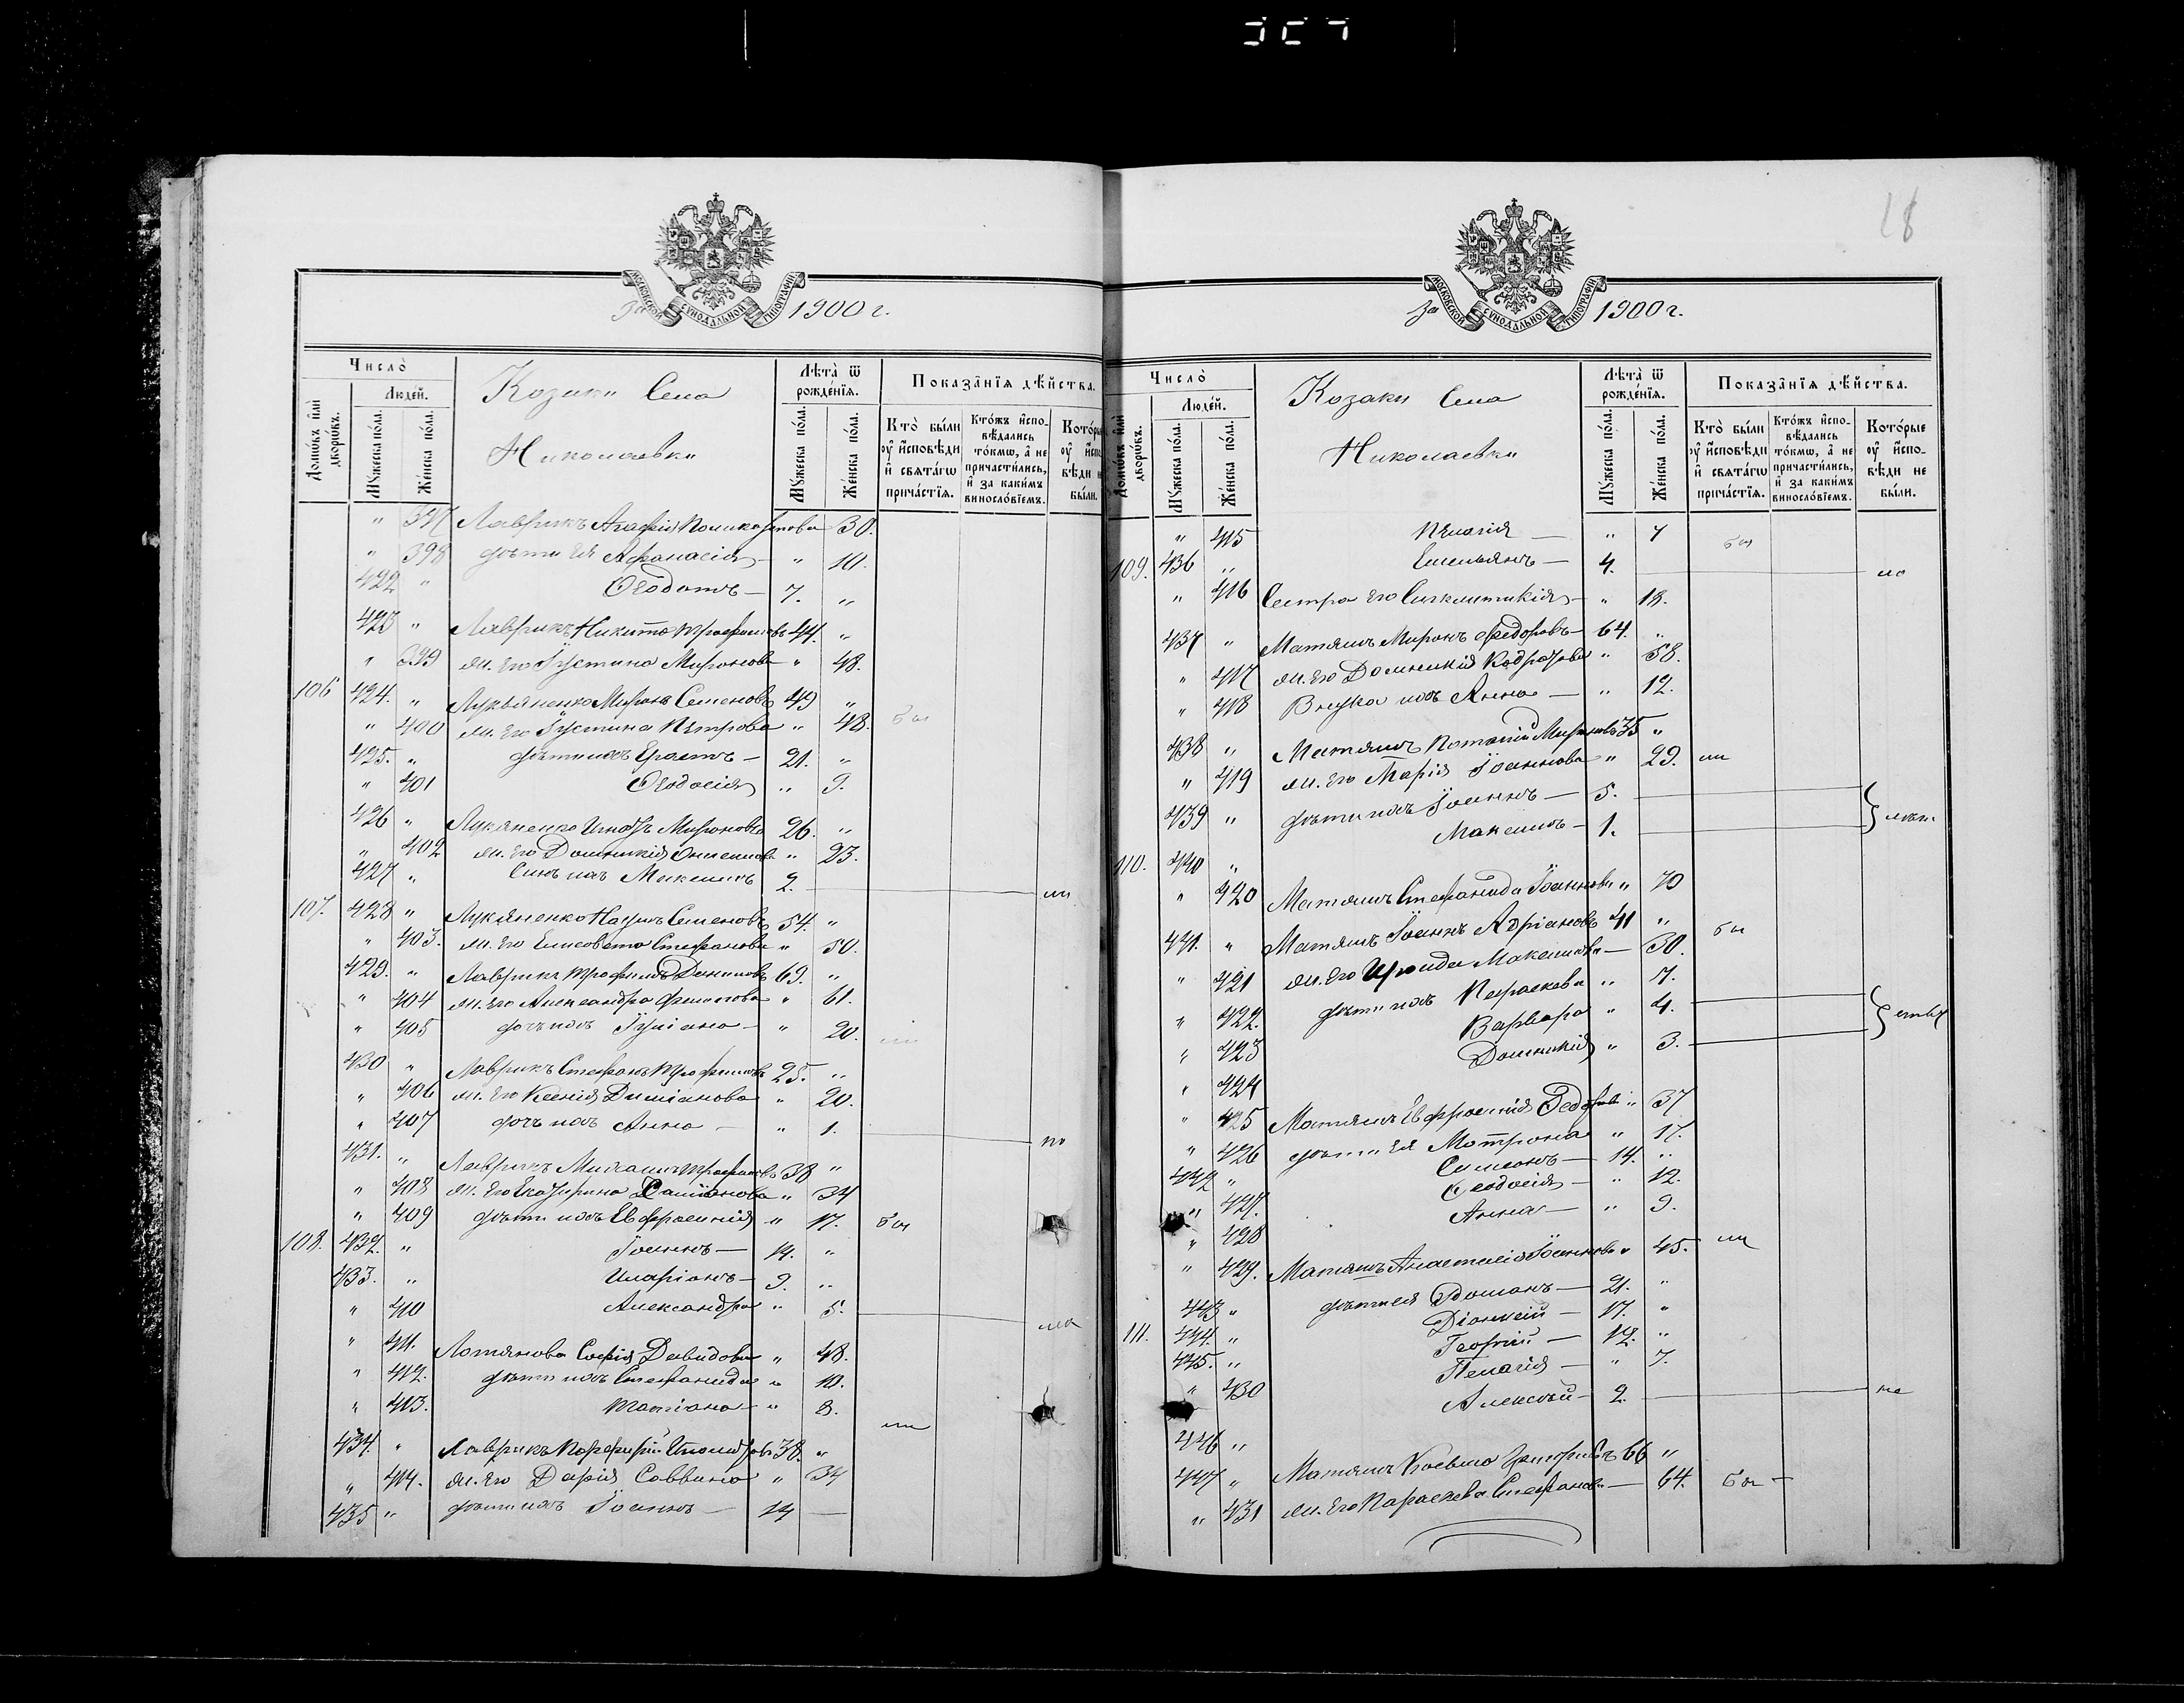 18
За 1900 г.
МОСКОВСКОЙ СУНОДАЛЬНОЙ ТИПОГРАФІИ
Число̀
Людей.
Домѡ́въ и҆лѝ дворѡ́въ.
Мꙋжеска по́ла.
Же́нска по́ла.
Козаки Села
Николаевки
Лѣта̀ ѿ рожде́нїѧ.
Мꙋжеска по́ла.
Же́нска по́ла.
Показа̂нїѧ дѣ́йства.
Кто̀ бы́ли ᲂу҆ и҆́сповѣди и҆ свѧта́гѡ прича́стїѧ.
Кто́жъ и҆спо-вѣ́дались то́кмѡ, а҆ не причасти́лись, и҆ за каки́мъ винослѡ́вїемъ.
" 397 Лаврикъ Агафія Поликарпова 30.
" 398 дѣти ея Афанасія — " 10.
422 " Ѳеодотъ — 7. "
423 " Лаврикъ Никита Трофимовъ 44. "
" 399 ж. его Іустина Миронова " 48.
106 424. " Лукьяненко Миронъ Семеновъ 49 "
" 400 ж. его Іустина Петрова " 48. был
425. " дѣти ихъ Ерастъ — 21. "
" 401 Ѳеодосія " 9.
426 " Лукяненко Мироновъ 26. "
" 402 ж. его Домникія " 23.
427 " Сынъ ихъ Максимъ 2.
107. 428 " Лукяненко Наумъ Семеновъ 54. "
" 403. ж. его Елисавета Стефанова " 50.
429. " Лаврикъ Трофимъ Даниловъ 69. "
" 404 ж. его Александра Филипова " 61.
" 405 дочь ихъ Іуліана — " 20.
430 " Лаврикъ Стефанъ Трофимовъ 25. "
" 406 ж. его Ксенія Даміанова " 20.
" 407 дочь ихъ Анна — " 1.
431. " Лаврикъ Михаилъ Трофимовъ 38 "
" 408 ж. его Екатерина Даміанова " 34
" 409 дѣти ихъ Евфросинія " 17. был
108. 432. " Іоаннъ — 14. "
433. " Иларіонъ — 9. "
" 410 Александра " 5.
" 411. Лотянова Софія Давидова " 48.
" 412. дѣти ихъ Стефанида " 10.
" 413. Татіана — " 8.
434. " Лаврикъ Порфирій 38. "
" 414. ж. его Дарія Саввина " 34
435 " дѣти ихъ Іоаннъ — 14 —
За 1900 г.
МОСКОВСКОЙ СУНОДАЛЬНОЙ ТИПОГРАФІИ
Число̀
Людей.
Домѡ́въ и҆лѝ дворѡ́въ.
Мꙋжеска по́ла.
Же́нска по́ла.
Козаки Села
Николаевки
Лѣта̀ ѿ рожде́нїѧ.
Мꙋжеска по́ла.
Же́нска по́ла.
Показа̂нїѧ дѣ́йства.
Кто̀ бы́ли ᲂу҆ и҆́сповѣди и҆ свѧта́гѡ прича́стїѧ.
Кто́жъ и҆спо-вѣ́дались то́кмѡ, а҆ не причасти́лись, и҆ за каки́мъ винослѡ́вїемъ.
Кото́рые ᲂу҆ и҆спо-вѣ́ди не бы́ли.
" 415 Пелагія — " 7 был
109. 436 " Емельянъ — 4.
" 416 Сестра его Синклитикія — " 18.
437 " Матяшъ Миронъ Федоровъ — 64. "
" 417 ж. его Домникія Кодратова " 58.
" 418 Внука ихъ Анна — " 12.
438 " Матяшъ Потапій Мироновъ 35 "
" 419 ж. его Марія Іоаннова " 29.
439 " дѣти ихъ Іоаннъ — 5.
Максимъ — 1.
110. 440 "
" 420 Матяшъ Стефанида Іоаннова " 70
441. " Матяшъ Іоаннъ Адріановъ 41 " был
" 421 ж. его Ираида Максимова — 30.
" 422. дѣти ихъ Параскева " 7.
" 423 Варвара " 4.
" 424 Домникія " 3.
" 425 Матяшъ Евфросинія Федорова " 37
" 426 дѣти ея Мотрона " 17.
442 " Симеонъ — 14. "
" 427. Ѳеодосія — " 12.
" 428 Анна — " 9.
" 429. Матяшъ Анастасія Іоаннова " 45.
443 " дѣти ея Романъ — 21. "
111. 444. " Діонисій — 17. "
445. " Георгій — 12. "
" 430 Пелагія — " 7.
446 " Алексѣй — 2.
447 " Матяшъ Косьма Григорьевъ 66 "
" 431 ж. его Параскева Стефанова — 64. был —